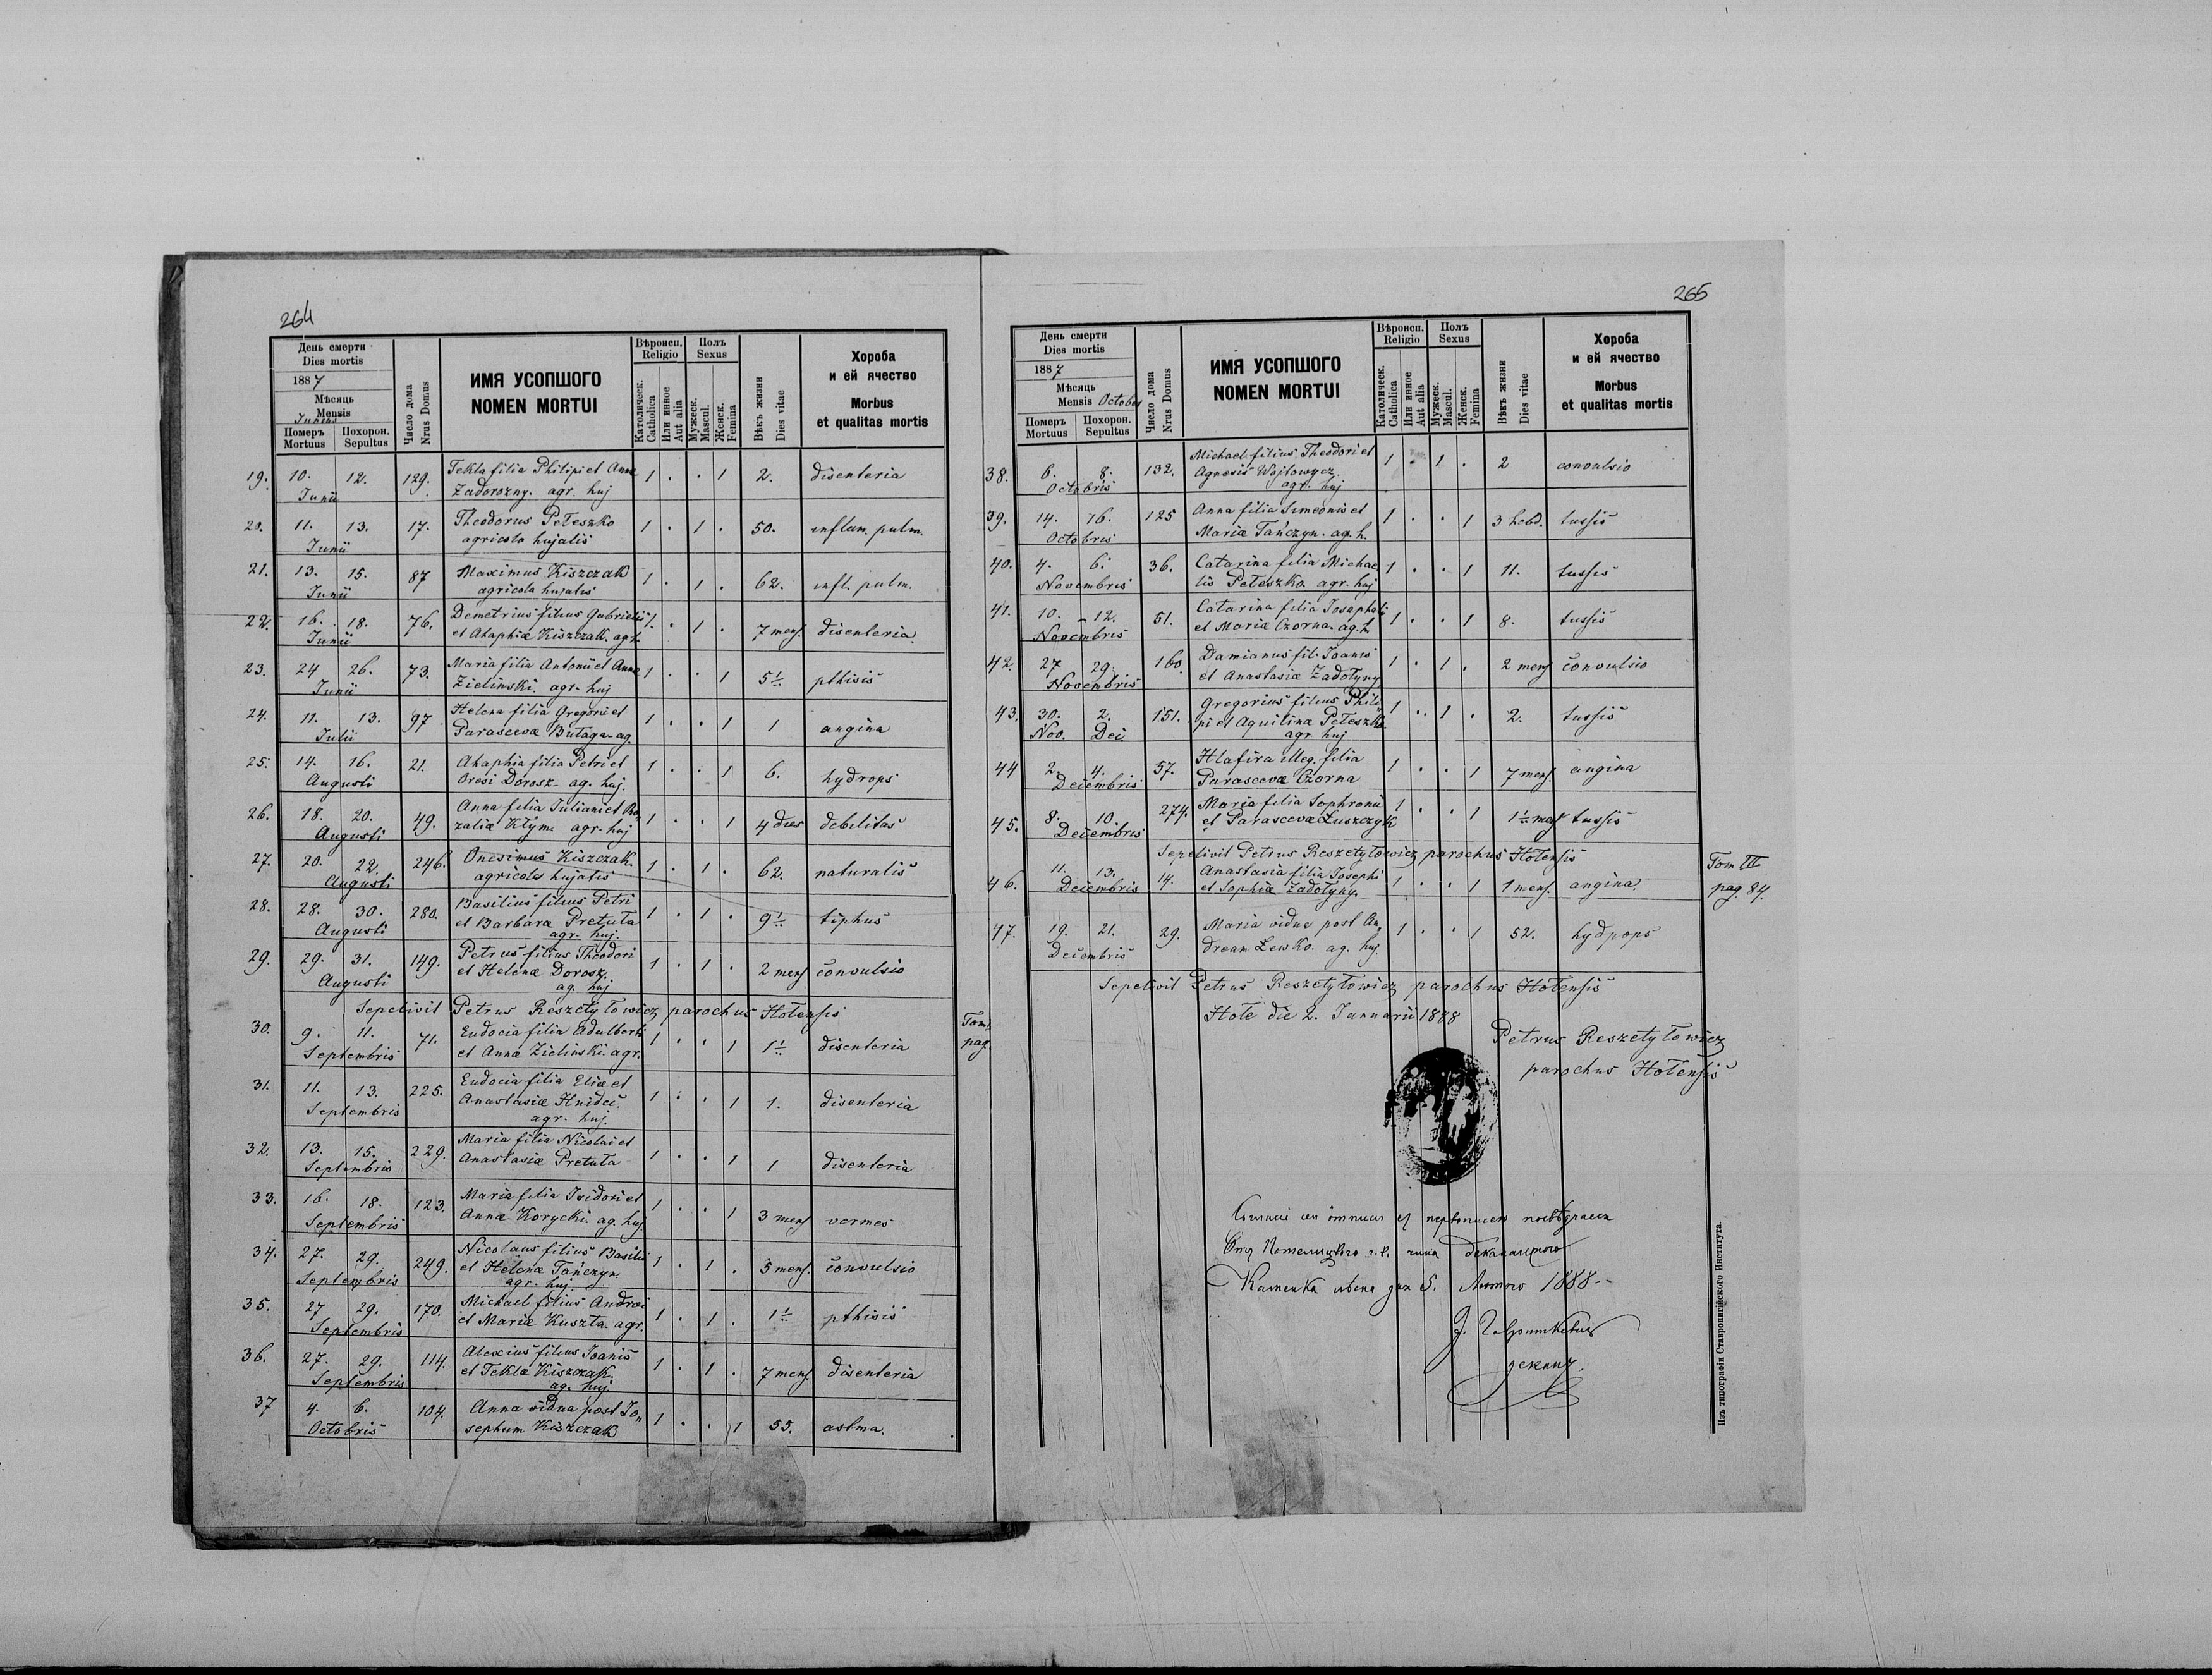 264
День смерти
Dies mortis
1887
Мѣсяць
Mensis
Junius
Померъ
Mortuus
Похорон.
Sepultus
Число дома
Nrus Domus
ИМЯ УСОПШОГО
NOMEN MORTUI
Вѣроисп.
Religio
Католическ.
Catholica
Или инное
Aut alia
Полъ
Sexus
Мужеск.
Mascul.
Женск.
Femina
Вѣкъ жизни
Dies vitae
Хороба
и ей ячество
Morbus
et qualitas mortis
19. 10. 12. 129. Tekla filia Philipi et Anna 1 . . 1 2. disenteria
Junii Zadorozny. agr. huj
20. 11. 13. 17. Theodorus Peteszko 1 . 1 . 50. inflam. pulm.
Junii agricola hujatis
21. 13. 15. 87 Maximus Kiszczak 1 . 1 . 62. infl. pulm.
Junii agricola hujatis
22. 16. 18. 76. Demetrius filius Gabrielis 1 . 1 . 7 mens. disenteria.
Junii et Ahaphiæ Kiszczak. agr.
23. 24 26. 73. Maria filia Antonii et Anna 1 . . 1 5½ pthisis
Junii Zielinski. agr. huj
24. 11. 13. 97 Helena filia Gregorii et 1 . . 1 1 angina
Julii Parascevæ Butaga ag.
25. 14. 16. 21. Ahaphia filia Petri et 1 . . 1 6. hydrops
Augusti Oresi Dorosz. ag. huj.
26. 18. 20. 49. Anna filia Juliani et Ro, 1 . . 1 4 dies debilitas
Augusti zaliæ Kłym. agr. huj
27. 20. 22. 246. Onesimus Kiszczak. 1 . 1 . 62. naturalis
Augusti agricola hujatis
28. 28. 30. 280. Basilius filius Petri 1 . 1 . 9½ tiphus
Augusti et Barbara Pretuła
agr. huj.
29. 29. 31. 149. Petrus filius Theodori 1 . 1 . 2 mens convulsio
Augusti et Helenæ Dorosz.
ag. huj
Sepelivit Petrus Reszetyłowicz parochus Hołensis
30. 9. 11. 71. Eudocia filia Adalberti 1 . . 1 1½ disenteria
Septembris et Anna Zielinski. agr.
Tom.
pag.
31. 11. 13. 225. Eudocia filia Eliæ et 1 . . 1 1. disenteria
Septembris Anastasiæ Hnideć.
agr. huj.
32. 13. 15. 229. Maria filia Nicolai et 1 . . 1 1 disenteria
Septembris Anastasiæ Pretuła
33. 16. 18. 123. Maria filia Isidori et 1 . . 1 3 mens vermes
Septembris Annæ Korycki. ag. huj
34. 27. 29. 249. Nicolaus filius Basilii 1 . 1 . 5 mens. convulsio
Septembris et Helenæ Tańczyn.
agr. huj.
35. 27 29. 170. Michael filius Andreæ 1 . 1 . 1½ pthisis
Septembris et Mariæ Kuszta. agr.
36. 27. 29. 114. Alexius filius Joanis 1 . 1 . 7 mens. disenteria
Septembris et Teklæ Kiszczak.
ag. huj
37 4. 6. 104. Anna vidua post Jo, 1 . . 1 55. astma.
Octobris sephum Kiszczak
265
День смерти
Dies mortis
1887
Мѣсяць
Mensis October
Померъ
Mortuus
Похорон.
Sepultus
Число дома
Nrus Domus
ИМЯ УСОПШОГО
NOMEN MORTUI
Вѣроисп.
Religio
Католическ.
Catholica
Или инное
Aut alia
Полъ
Sexus
Мужеск.
Mascul.
Женск.
Femina
Вѣкъ жизни
Dies vitae
Хороба
и ей ячество
Morbus
et qualitas mortis
38. 6. 8. 132. Michael filius Theodori et 1 . 1 . 2 convulsio
Octobris Agnesis Wojtowycz.
agr. huj
39. 14. 16. 125 Anna filia Simeonis et 1 . . 1 3 hebd. tussis
Octobris Mariæ Tańczyn. ag. h.
40. 4. 6. 36. Catarina filia Michae 1 . . 1 11. tussis
Novembris lis Peteszko. agr. huj
41. 10. 12. 51. Catarina filia Josaphati 1 . . 1 8. tussis
Novembris et Mariæ Czorna. ag. h
42. 27 29. 160. Damianus fil. Joanis 1 . 1 . 2 mens convulsio
Novembris et Anastasiæ Zadotyny
43. 30. 2. 151. Gregorius filius Phili, 1 . 1 . 2. tussis
Nov. Dec pi et Aquilinæ Peteszko
agr. huj
44 2. 4. 57. Hlafira illeg. filia 1 . . 1 7 mens. angina
Decembris Parascevæ Czorna
45. 8. 10. 274. Maria filia Sophronii 1 . . 1 1½ mens tussis
Decembris et Parascevæ Łuszczyk
Sepelivit Petrus Reszetyłowicz parochus Hołensis
46. 11. 13. 14. Anastasia filia Josephi 1 . . 1 1 mens. angina.
Decembris et Sophiæ Zadotyny.
Tom III
pag. 84.
47. 19. 21. 29. Maria vidua post An, 1 . . 1 52. hydpops
Decembris dream Lewko. ag. huj.
Sepelivit Petrus Reszetyłowicz parochus Hołensis
Hołe die 2. Januarii 1888
Petrus Reszetyłowicz
parochus Hołensis
Каменка дня 5. Лютого 1888.
деканъ
Изъ типографіи Ставропигійского Института.